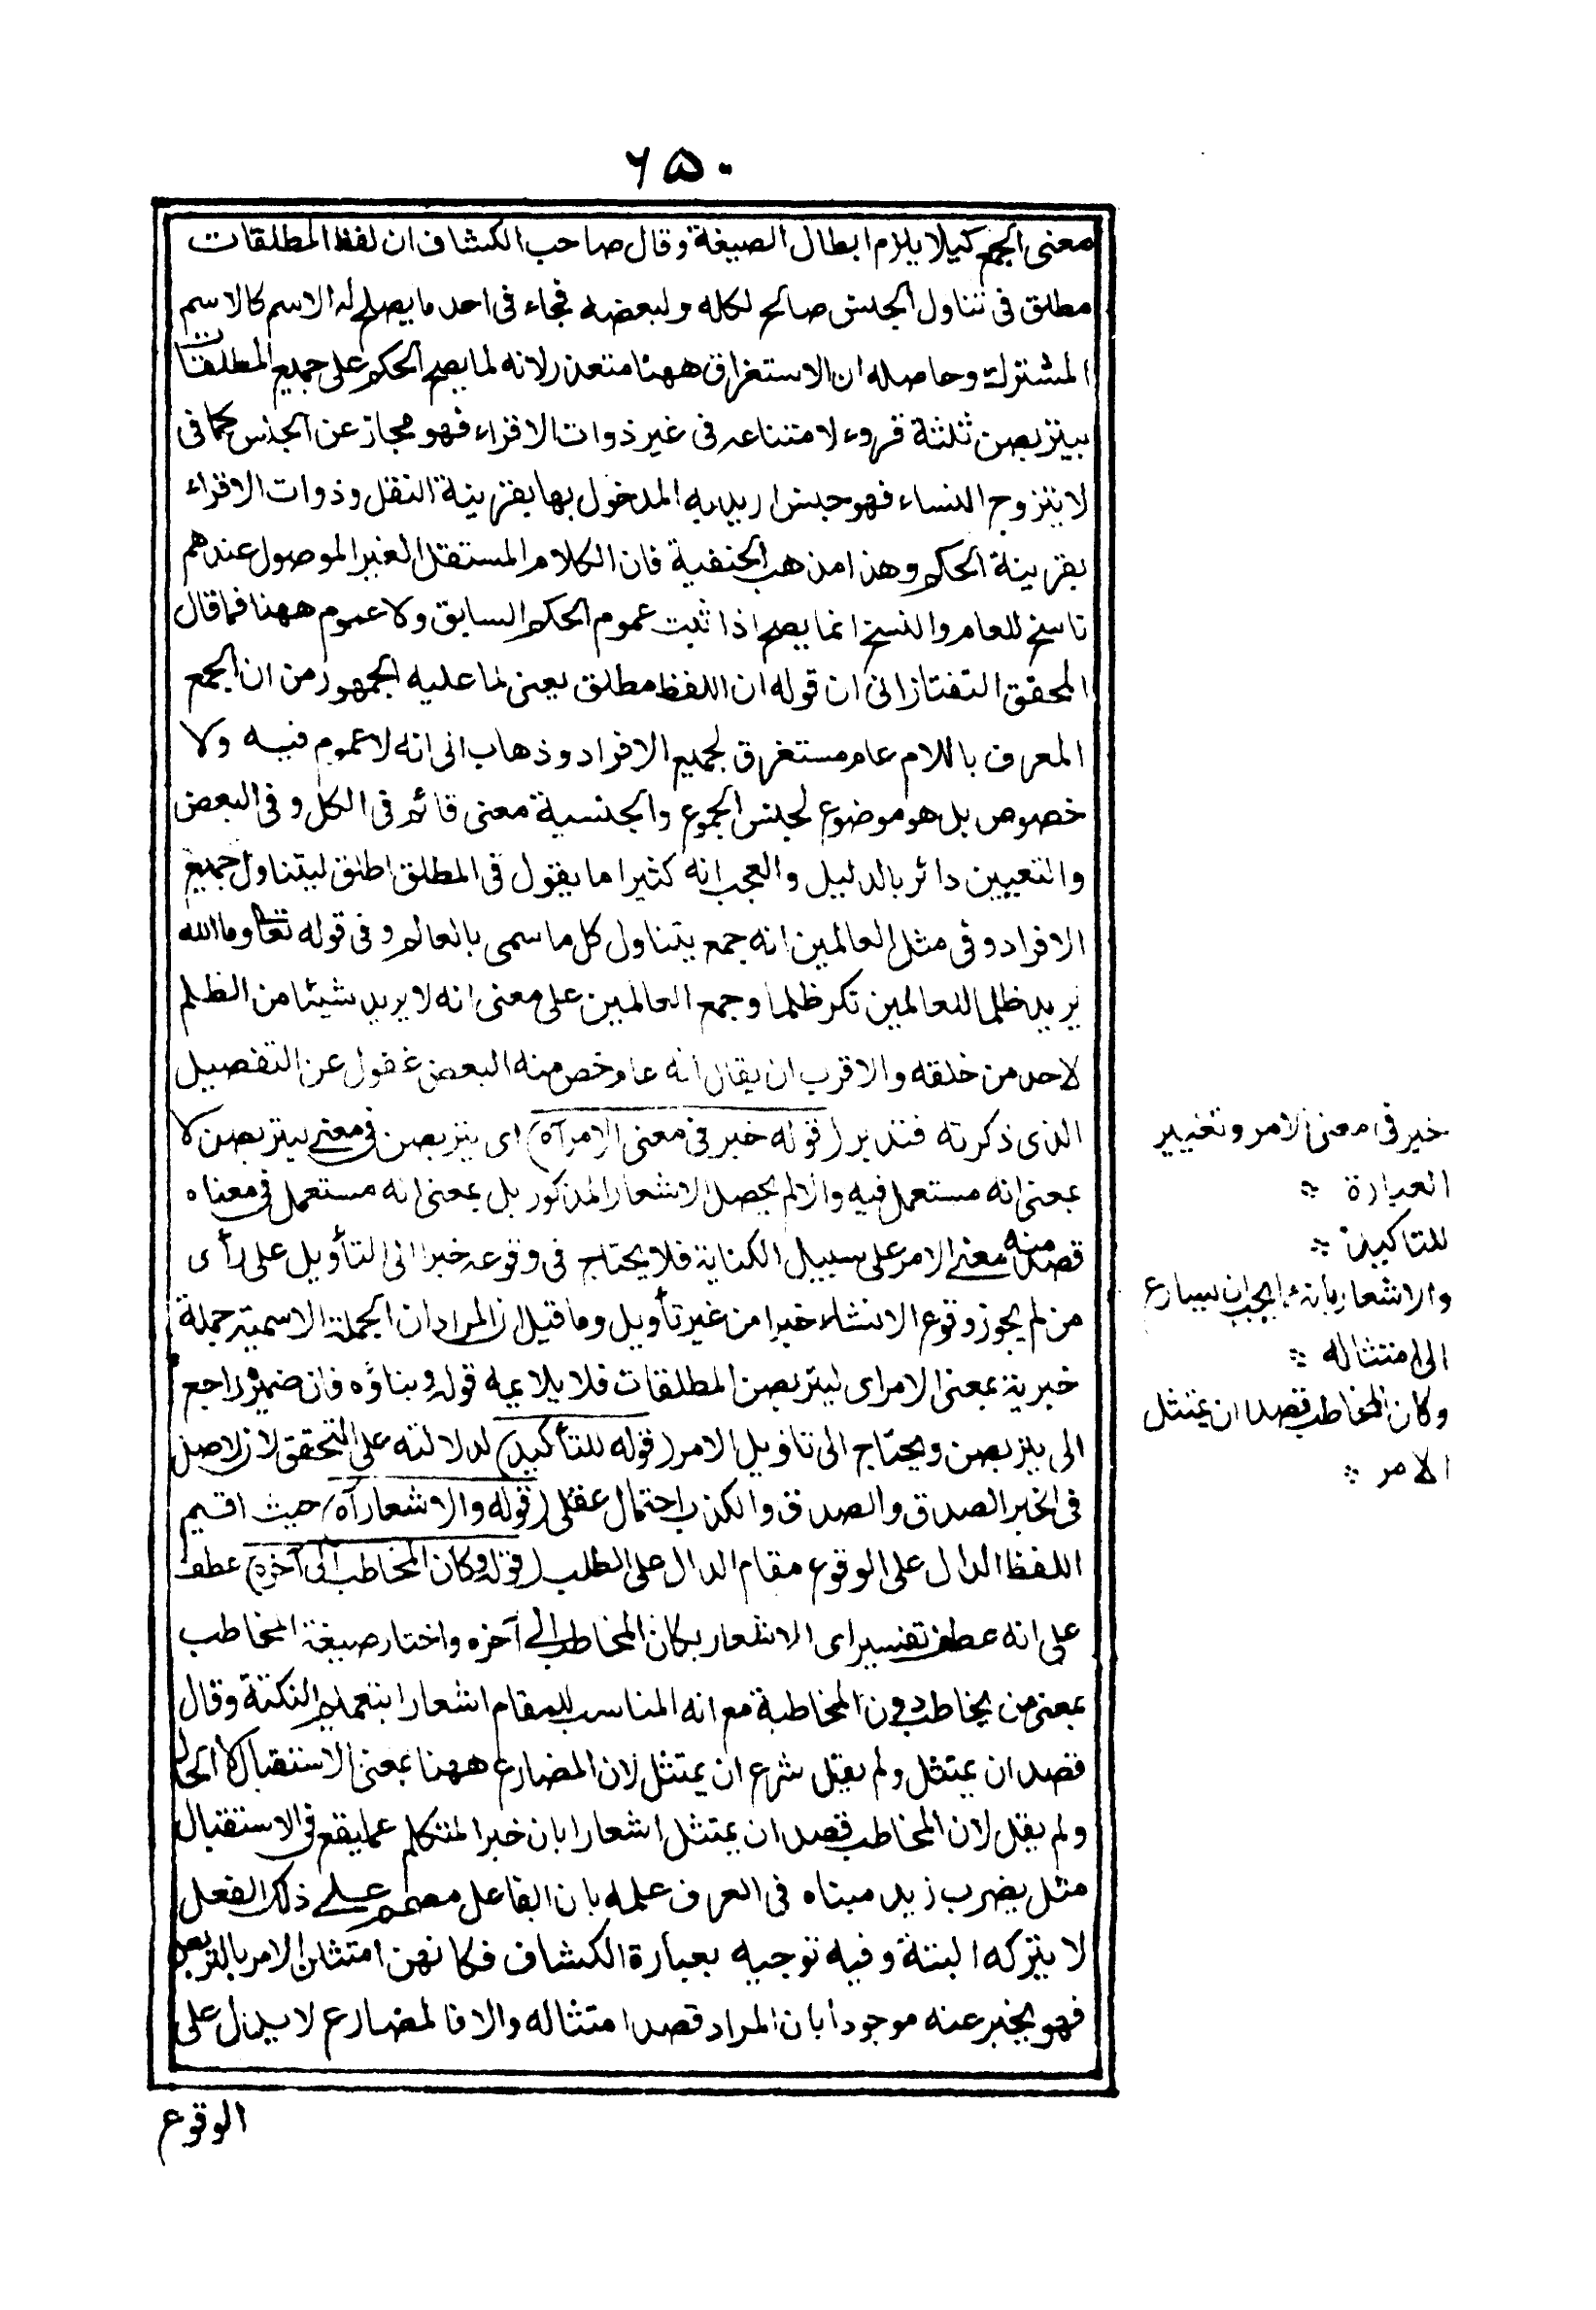 ٦٥٠
معنى الجمع كيلا يلزم ابطال الصيغة وقال صاحب الكشاف ان لفظ المطلقات
مطلق فى تناول الجنس صالح لكله ولبعضه فجاء فى احد ما يصلح له الاسم كالاسم
المشترك وحاصله ان الاستغراق ههنا متعذر لانه لما يصح الحكم على جميع المطلقات
بيتربصن ثلثة قروء لامتناعه فى غير ذوات الاقراء فهو مجاز عن الجنس كما فى
لا يتزوج النساء فهو جنس اريد به المدخول بها بقرينة النقل وذوات الاقراء
بقرينة الحكم وهذا مذهب الحنفية فان الكلام المستقل الغير الموصول عندهم
ناسخ للعام والنسخ انما يصح اذا ثبت عموم الحكم السابق ولا عموم ههنا فما قال
المحقق التفتازانى ان قوله ان اللفظ مطلق يعنى لما عليه الجمهور من ان الجمع
المعرف باللام عام مستغرق لجميع الافراد وذهاب الى انه لا عموم فيه ولا
خصوص بل هو موضوع لجنس الجموع والجنسية معنى قائم فى الكل وفى البعض
والتعيين دائر بالدليل والعجب انه كثيرا ما يقول فى المطلق اطلق ليتناول جميع
الافراد وفى مثل العالمين انه جمع يتناول كل ما سمى بالعالم وفى قوله تعا وما الله
يريد ظلما للعالمين نكر ظلما وجمع العالمين على معنى انه لا يريد شيئا من الظلم
لاحد من خلقه والاقرب ان يقال انه عام خص منه البعض غفول عن التفصيل
الذى ذكرته فتدبر (قوله خبر فى معنى الامر آه) اى يتربصن فى معنى ليتربصن لا
بمعنى انه مستعمل فيه والا لم يحصل الاشعار المذكور بل بمعنى انه مستعمل فى معناه
قصد منه معنى الامر على سبيل الكناية فلا يحتاج فى وقوعه خبرا الى التأويل على رأى
من لم يجوز وقوع الانشاء خبرا من غير تأويل وما قيل ان المراد ان الجملة الاسمية جملة
خبرية بمعنى الامر اى ليتربصن المطلقات فلا يلايمه قوله وبناؤه فان ضميره راجع
الى يتربصن ويحتاج الى تاويل الامر (قوله للتأكيد) لدلالته على التحقق لان الاصل
فى الخبر الصدق والصدق والكذب احتمال عقلى (قوله والاشعار آه) حيث اقيم
اللفظ الدال على الوقوع مقام الدال على الطلب (قوله وكان المخاطب الى آخره) عطف
على انه عطف تفسير اى الاشعار بكان المخاطب الى آخره واختار صيغة المخاطب
بمعنى من يخاطب دون المخاطبة مع انه المناسب للمقام اشعارا بتعميم النكتة وقال
قصد ان يمتثل ولم يقل شرع ان يمتثل لان المضارع ههنا بمعنى الاستقبال لا الحال
ولم يقل لان المخاطب قصد ان يمتثل اشعارا بان خبر المتكلم عما يقع فى الاستقبال
مثل يضرب زيد مبناه فى العرف علمه بان الفاعل مصمم على ذلك الفعل
لا يتركه البتة وفيه توجيه بعبارة الكشاف فكانهن امتثلن الامر بالتربص
فهو يخبر عنه موجودا بان المراد قصد امتثاله والا فالمضارع لا يدل على
الوقوع
خبر فى معنى الامر وتغيير
العبارة
للتاكيد
والاشعار بانه مما يجب ان يسارع
الى امتثاله
وكان المخاطب قصد ان يمتثل
الامر